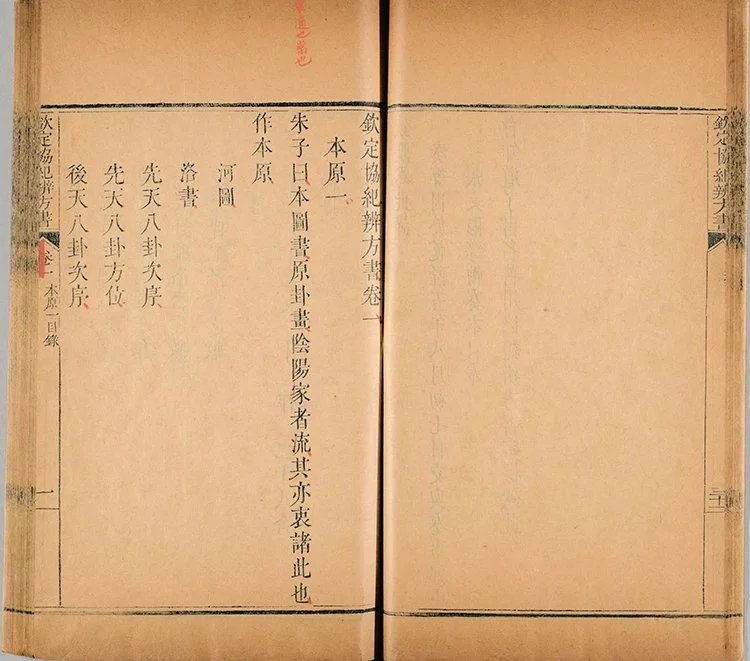 欽定協紀辨方書
欽定協紀辨方書卷一
本原一
朱子曰本圖書原卦畫陰陽家者流其亦衷諸此也
作本原
河圖
洛書
先天八卦次序
先天八卦方位
後天八卦次序
欽定協紀辨方書
卷一 本原一目錄
一